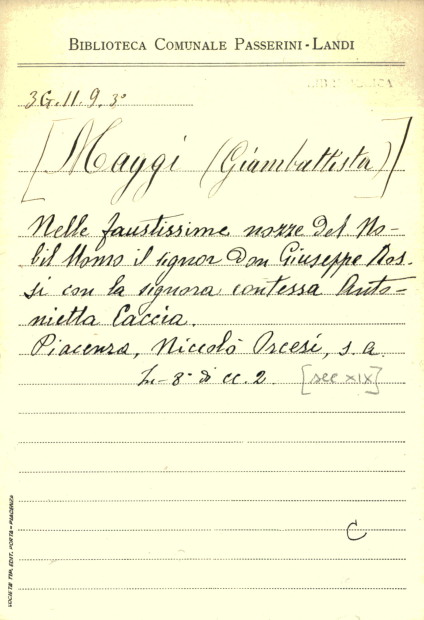 BIBLIOTECA COMUNALE PASSERINI-LANDI
3G.11.9.3°
[Maggi (Giambattista)]
Nelle faustissime nozze del No-
bil Uomo il signor Don Giuseppe Ros-
si con la signora contessa Anto-
nietta Caccia.
Piacenza, Niccolò Orcesi, s.a.
In-8° di cc. 2. [sec XIX]
C
SOCIETÀ TIP. EDIT. PORTA - PIACENZA